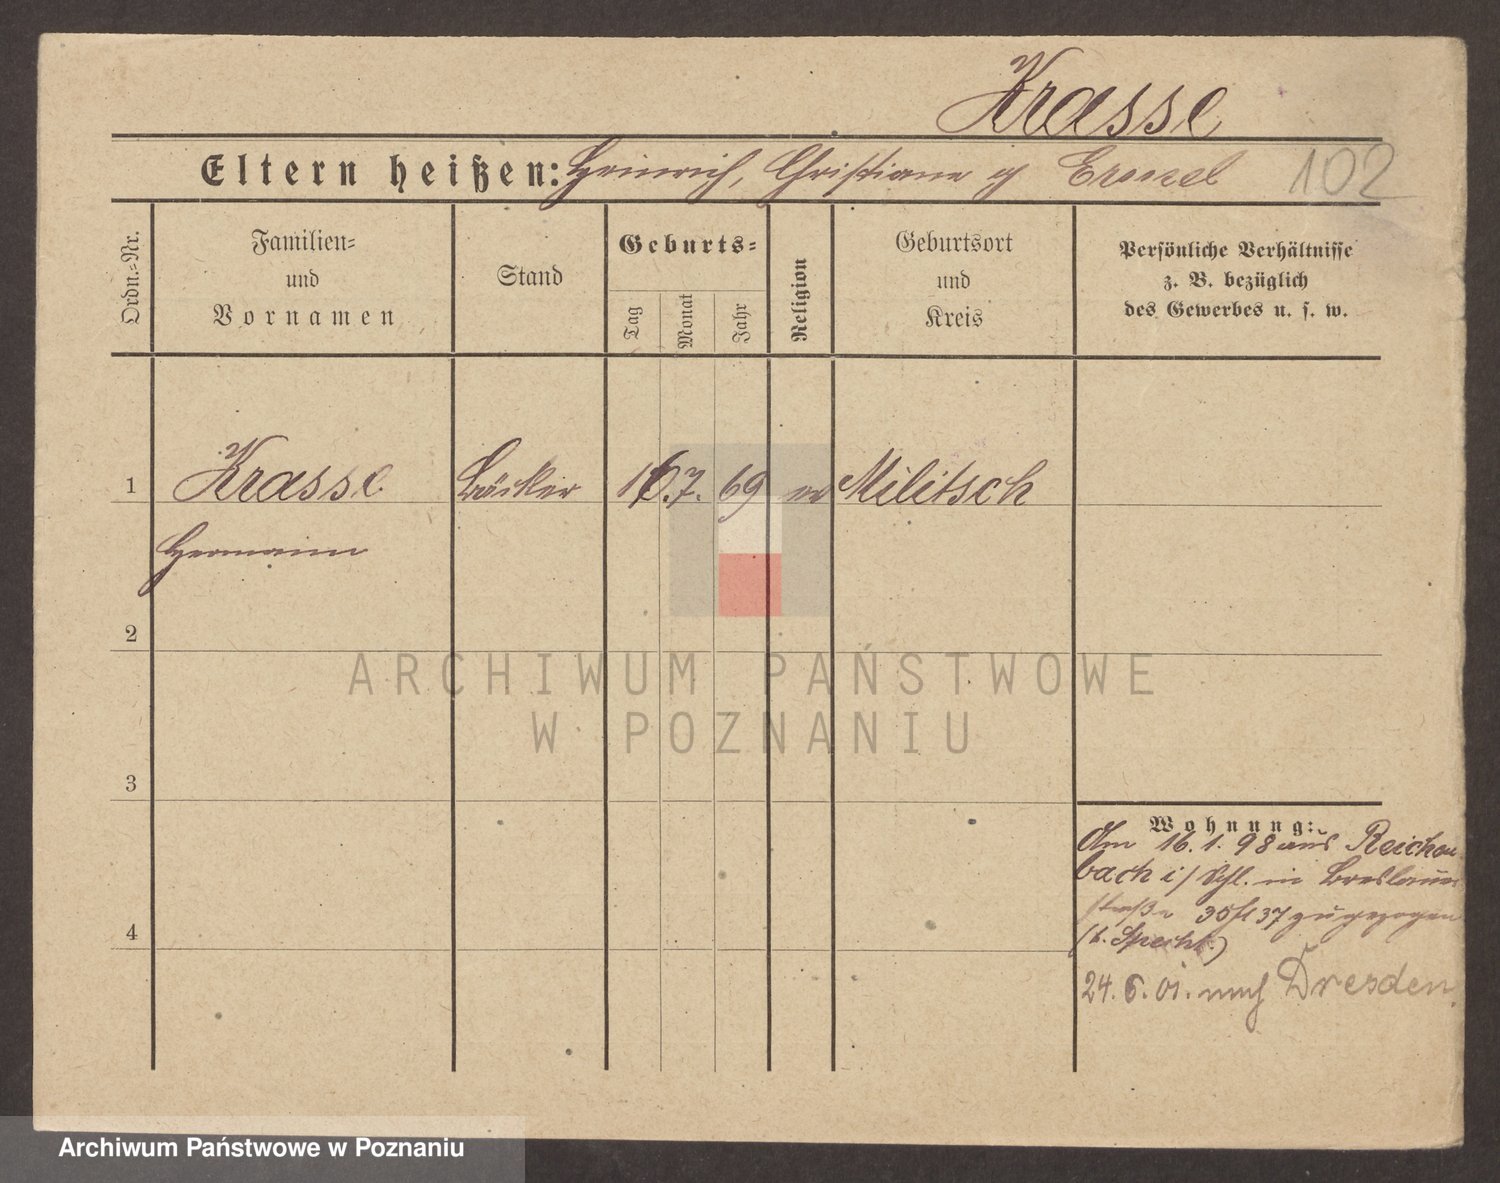 Krasse
Eltern heißen: Heinrich, Christiane g
102
Ordn.-Nr.
Familien-
und
Vornamen
Stand
Geburts-
Tag
Monat
Jahr
Religion
Geburtsort
und
Kreis
Persönliche Verhältnisse
z. B. bezüglich
des Gewerbes u. s. w.
1 Krasse Bäcker 16. 7. 69 ev Militsch
Hermann
2
3
4
Wohnung:
Am 16. 1. 98 aus Reichen
bach i/ Schl. in Breslauer
straße 35/37 zugezogen
(b. Specht.)
24. 6. 01. nach Dresden.
ARCHIWUM PAŃSTWOWE
W POZNANIU
Archiwum Państwowe w Poznaniu